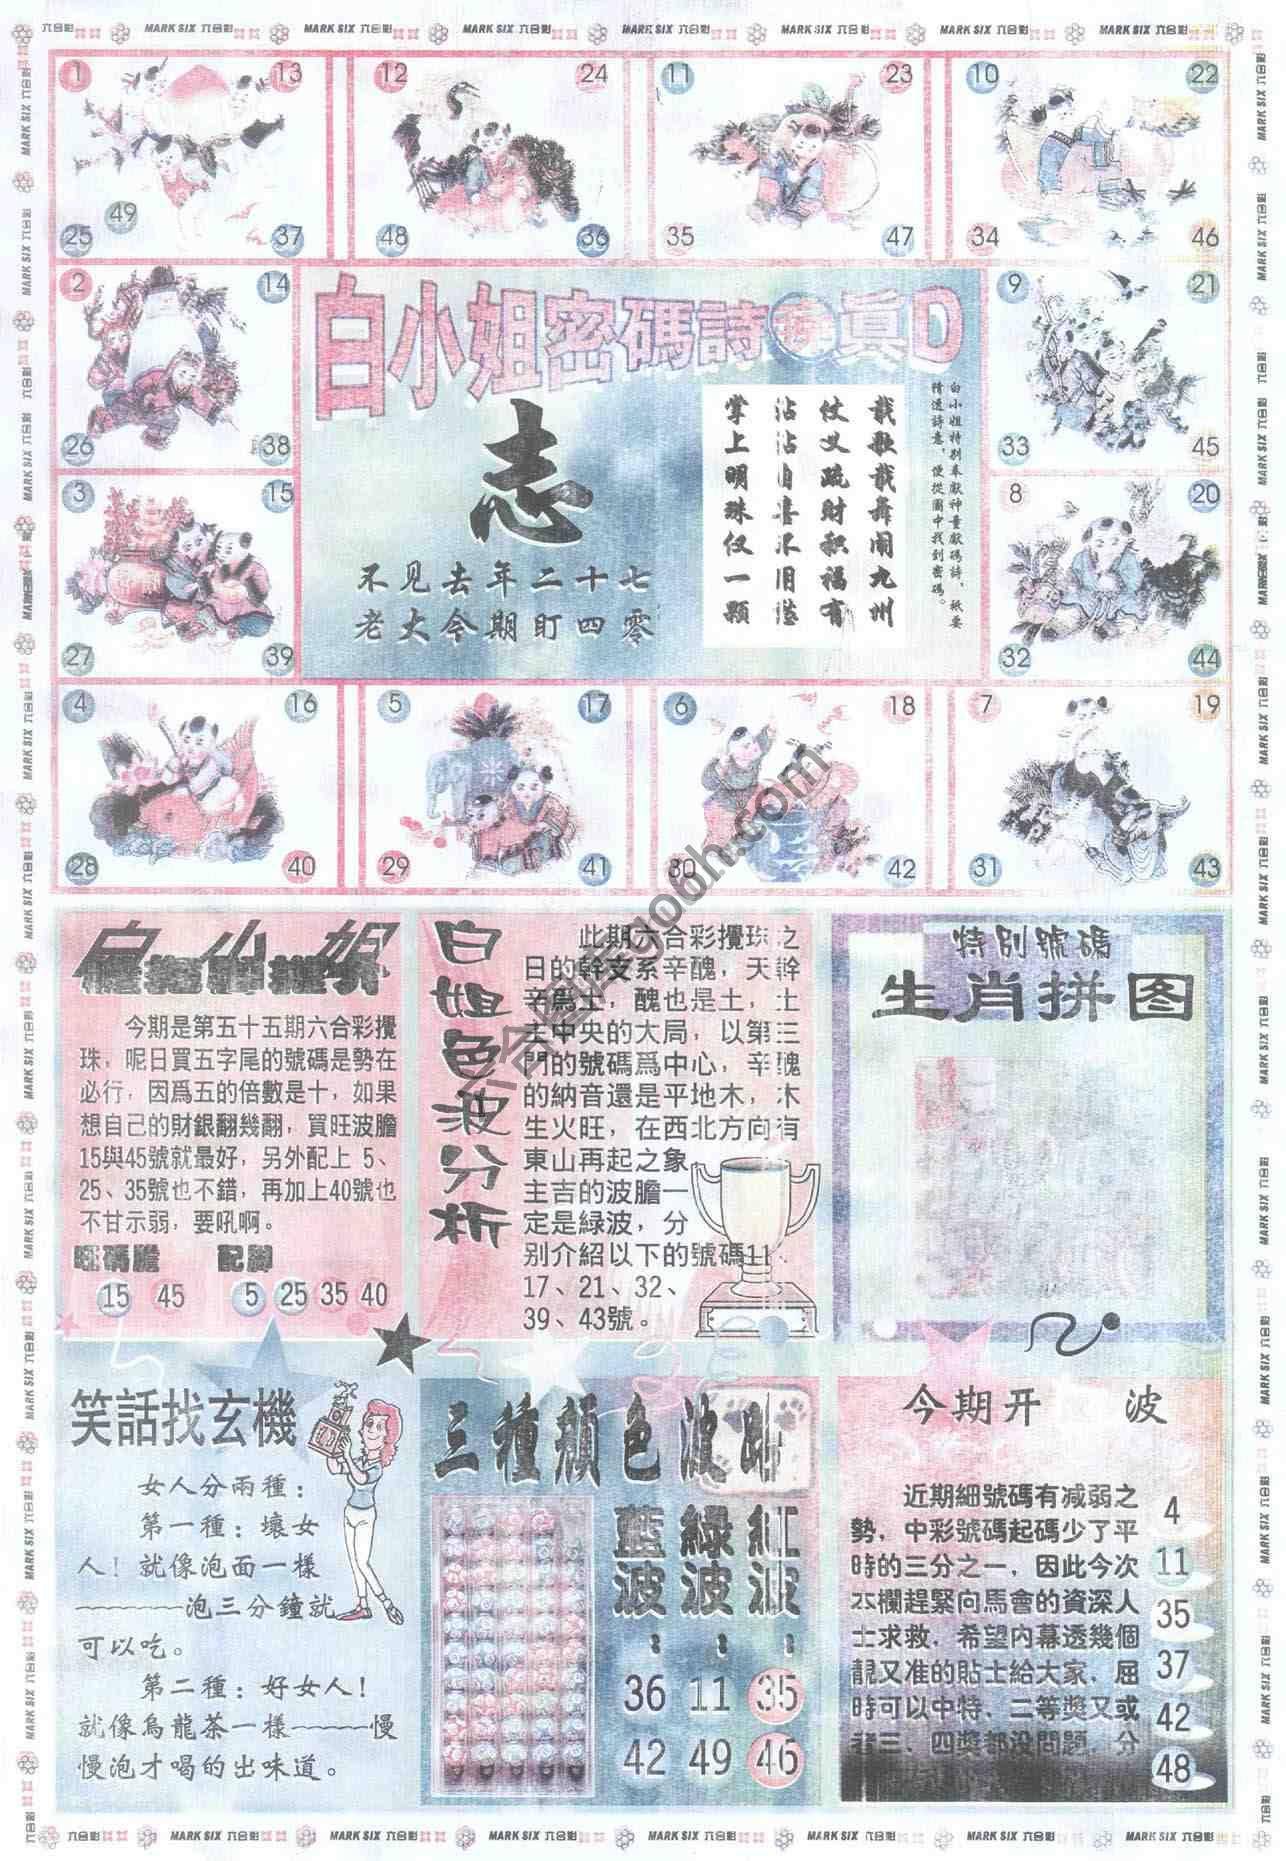 MARK SIX 六合彩
1 13 25 37 49
12 24 48 36
11 23 35 47
10 22 34 46
2 14 26 38
9 21 33 45
3 15 27 39
8 20 32 44
4 16 28 40
5 17 29 41
6 18 30 42
7 19 31 43
白小姐密碼詩 真D
志
不见去年二十七
老大今期盯四零
载歌载舞闹九州
仗义疏財积福有
沾沾自喜不用愁
掌上明珠仅一颗
白小姐特别奉献神童獻碼詩，祇要
猜透詩意，便從圖中找到密碼。
白小姐
今期是第五十五期六合彩攪
珠，呢日買五字尾的號碼是勢在
必行，因爲五的倍數是十，如果
想自己的財銀翻幾翻，買旺波膽
15與45號就最好，另外配上 5、
25、35號也不錯，再加上40號也
不甘示弱，要吼啊。
旺碼膽 配脚
15 45 5 25 35 40
白姐色波分析
此期六合彩攪珠之
日的幹支系辛醜，天幹
辛爲土，醜也是土，土
主中央的大局，以第三
門的號碼爲中心，辛醜
的納音還是平地木，木
生火旺，在西北方向有
東山再起之象，
主吉的波膽一
定是緑波，分
别介紹以下的號碼11、
17、21、32、
39、43號。
特别號碼
生肖拼图
笑話找玄機
女人分兩種：
第一種：壞女
人！就像泡面一樣
———泡三分鐘就
可以吃。
第二種：好女人！
就像烏龍茶一樣———慢
慢泡才喝的出味道。
三種顏色波
藍波： 緑波： 紅波：
36 11 35
42 49 46
今期开 波
近期細號碼有减弱之
勢，中彩號碼起碼少了平
時的三分之一，因此今次
本欄趕緊向馬會的資深人
士求救，希望内幕透幾個
靚又准的貼士給大家，屆
時可以中特、二等獎又或
者三、四獎都没問題，分
4
11
35
37
42
48
MARK SIX 六合彩